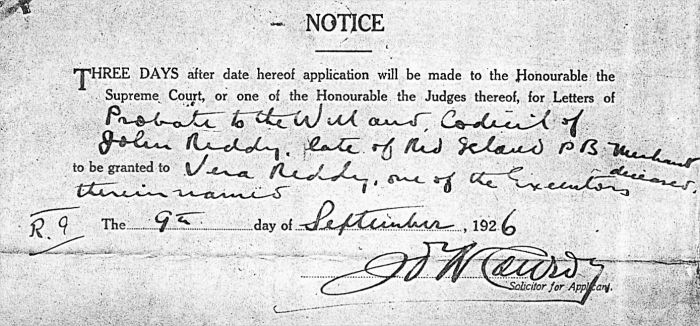 NOTICE
THREE DAYS after date hereof application will be made to the Honourable the
Supreme Court, or one of the Honourable the Judges thereof, for Letters of
Probate to the Will and Codicil of
John Reddy, late of Red Island P B Merchant
deceased
to be granted to Vera Reddy, one of the Executors
therein named
R. 9 The 9th day of September, 1926
Solicitor for Applicant.